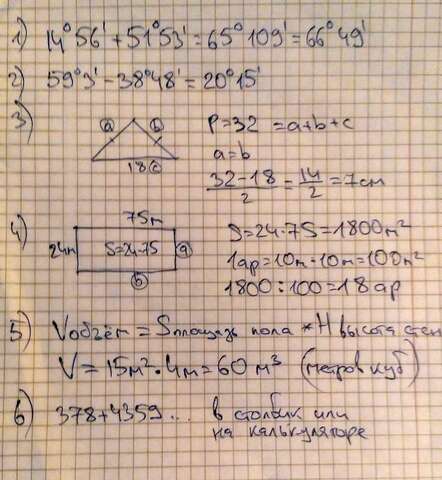 1) 14°56' + 51°53' = 65°109' = 66°49'
2) 59°3' - 38°48' = 20°15'
3) a b P=32 = a+b+c
a=b
18 c 32-18/2 = 14/2 = 7см
4) 75м S=24·75=1800м²
24м S=24·75 a 1ар=10м·10м=100м²
b 1800:100=18ар
5) Vобъём = Sплощадь пола * H высота стен
V=15м²·4м=60м³ (метров куб)
6) 378+4359... в столбик или
на калькуляторе